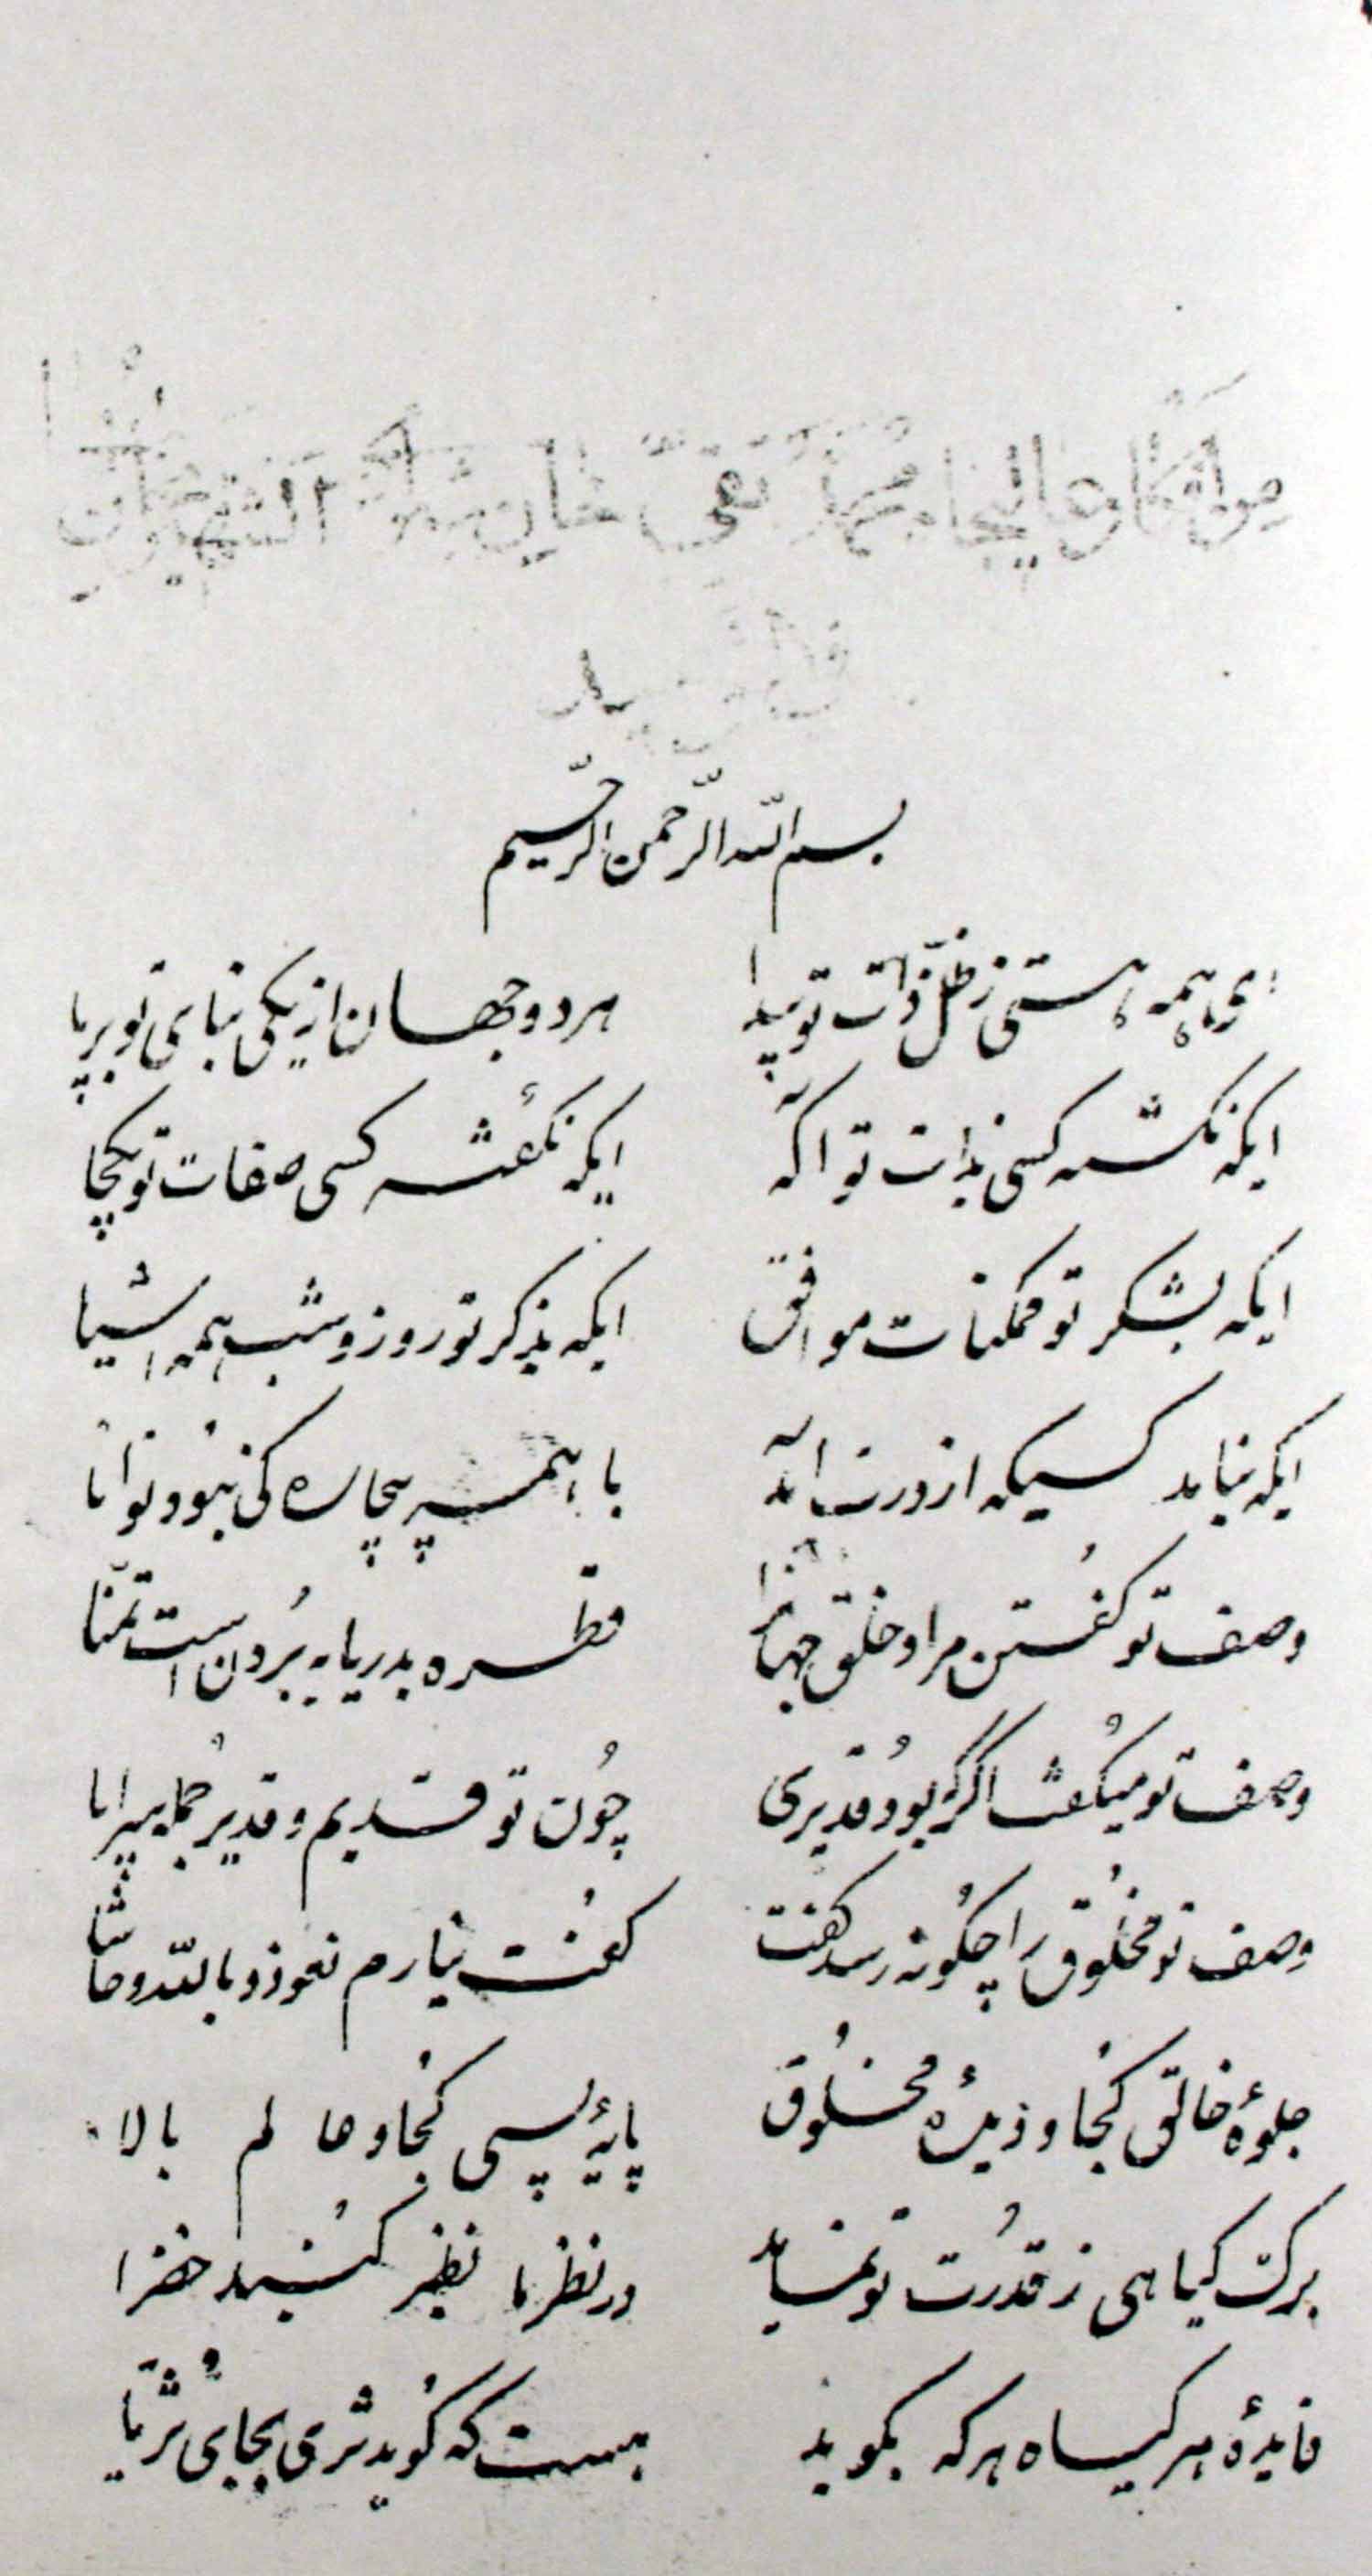 بسم الله الرّحمن الرّحیم
ای همه هستی ز ظلّ ذات تو پیدا هر دو جهان از یکی بنای تو برپا
ایکه نگشته کسی بذات تو اگه ایکه نگفته کسی صفات تو یکجا
ایکه بشکر تو ممکنات موافق ایکه بذکر تو روز و شب همه اشیا
ایکه نیاید کسیکه از درت اید با همه بیچاره کی نبود توانا
وصف تو گفتن مرا و خلق جهانرا قطره بدریا به بُردن است تمنّا
وصف تو میگفت اگر بُود قدیری چُون تو قدیم و قدیر جمله برایا
وصف تو مخلُوق را چگونه رسد گفت گفت نیارم نعوذ و بالله و حاشا
جلوۀ خالق کجا و دیدۀ مخلُوق پایۀ پسی کجا و عالم بالا
برک کیاهی ز قدرُت تو نماید در نظر ما نظیر کنبد خضرا
فایدۀ هر کیاه هر که بگوید هست که گوید ثری بجای ثریّا